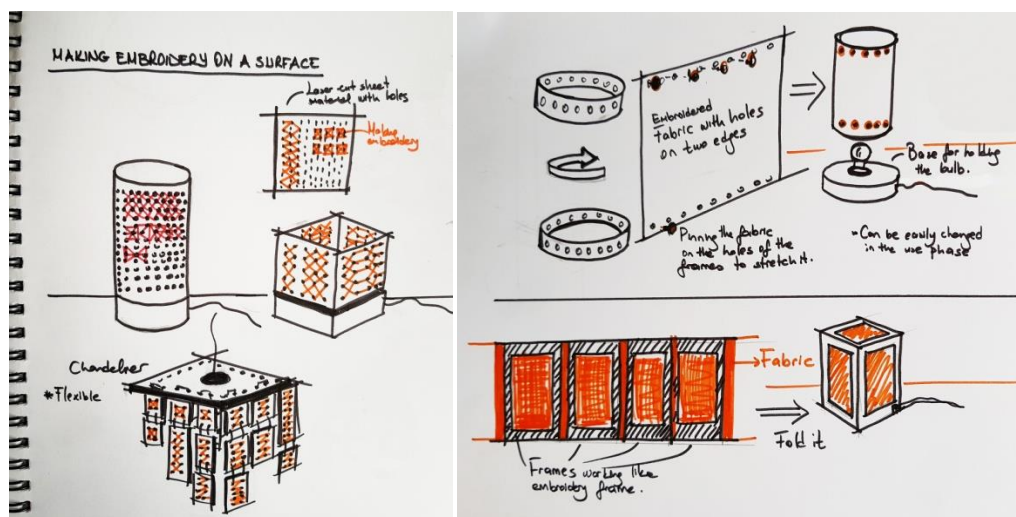 MAKING EMBROIDERY ON A SURFACE
Laser cut sheet
material with holes
Making
embroidery
Chandelier
*Flexible
Embroidered
fabric with holes
on two edges
Base for holding
the bulb.
Pinning the fabric
on the holes of the
frames to stretch it.
*Can be easily changed
in the use phase
Fabric
Fold it
Frames working like
embroidery frame.